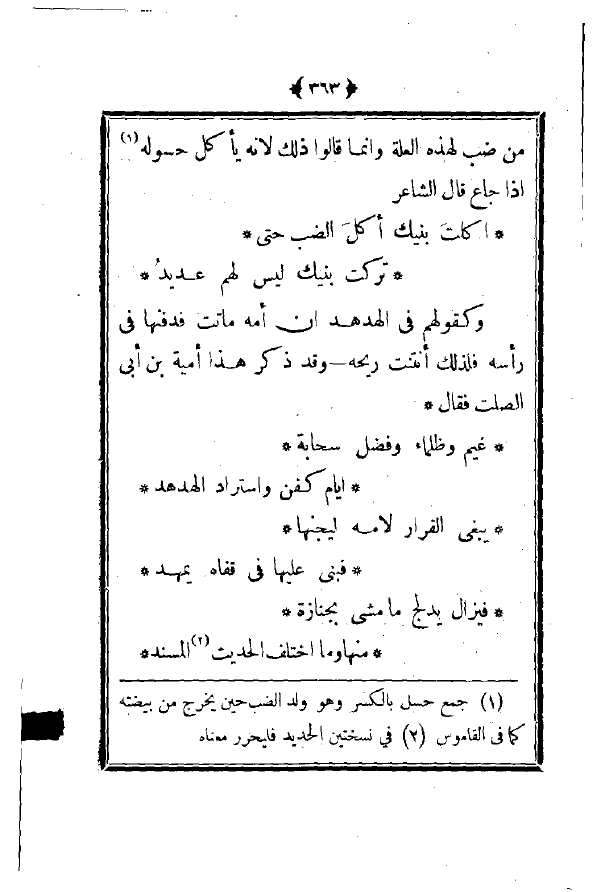 ﴿ ٣٦٣ ﴾
من ضب لهذه العلة وانما قالوا ذلك لانه يأكل حسوله (١)
اذا جاع قال الشاعر
* اكلتَ بنيك أكلَ الضب حتى *
* تركت بنيك ليس لهم عديدُ *
وكقولهم فى الهدهد ان أمه ماتت فدفنها فى
رأسه فلذلك أنتنت ريحه—وقد ذكر هذا أمية بن أبى
الصلت فقال *
* غيم وظلماء وفضل سحابة *
* ايام كفن واستراد الهدهد *
* يبغى القرار لامه ليجنها *
* فبنى عليها فى قفاه يمهد *
* فيزال يدلج مامشى بجنازة *
* منهاوما اختلف الحديث (٢) المسند *
(١) جمع حسل بالكسر وهو ولد الضب حين يخرج من بيضته
كما فى القاموس (٢) في نسختين الحديد فليحرر معناه